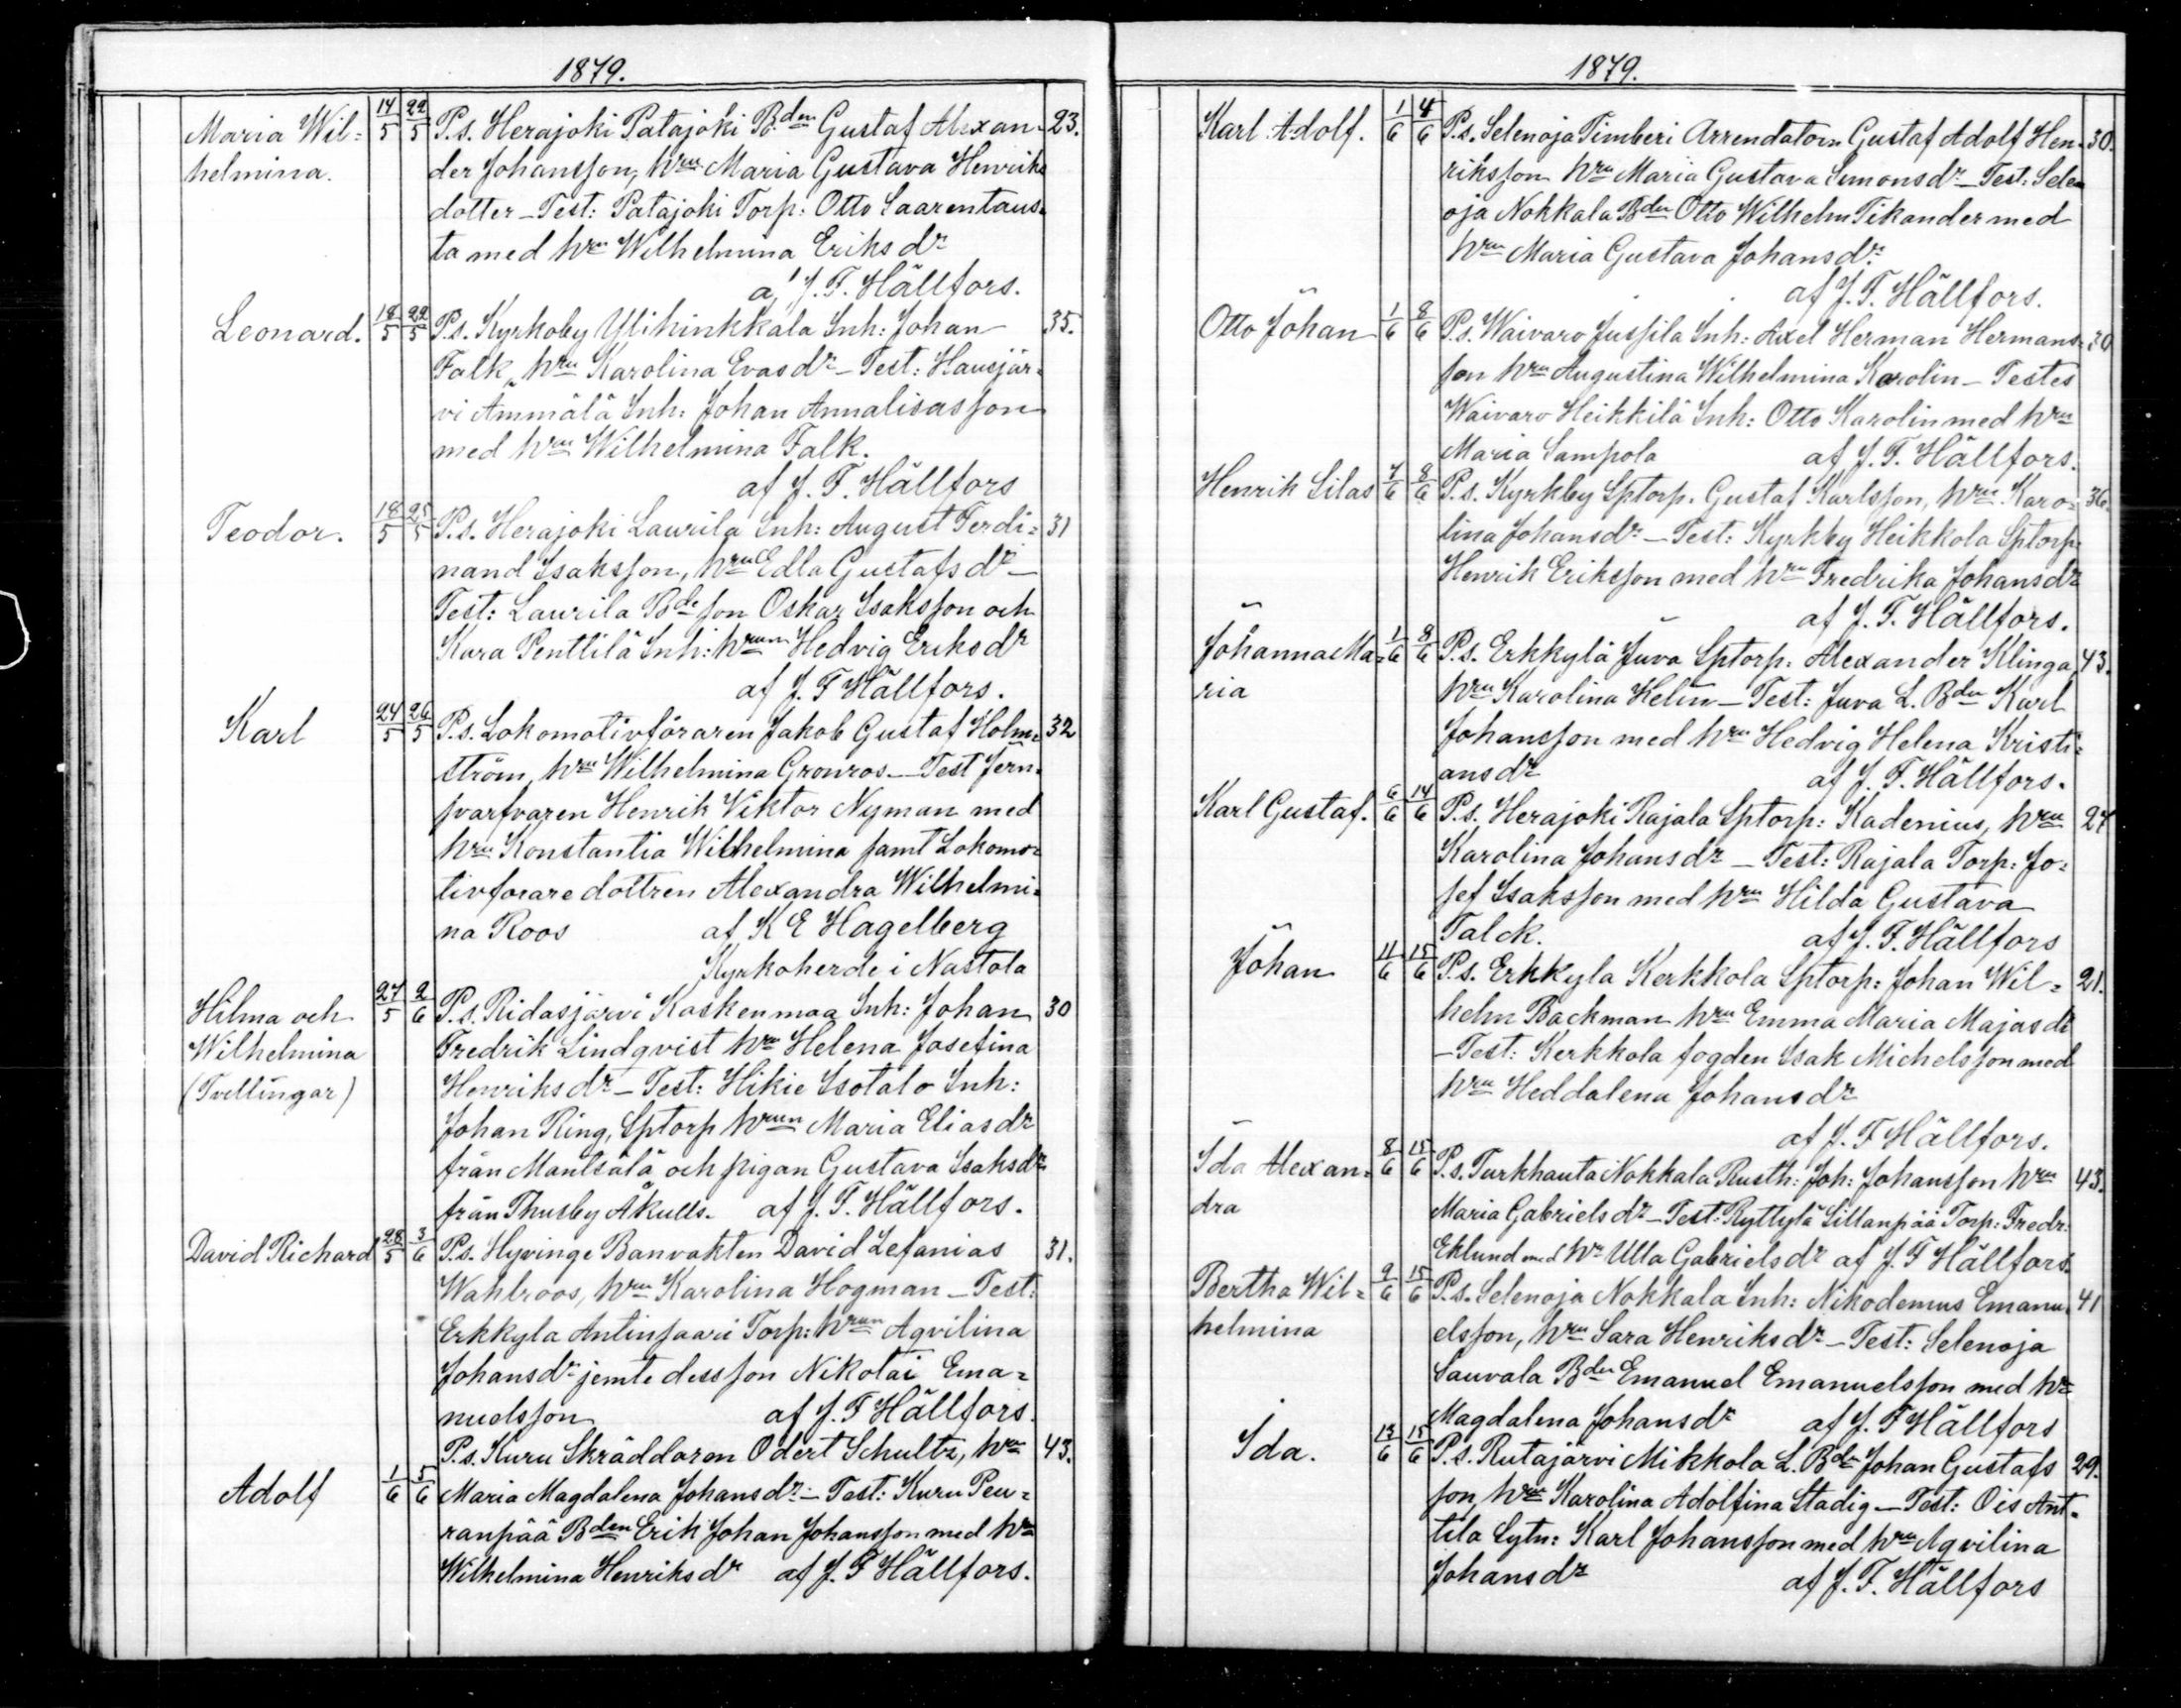 1879.
Maria Wil= 14/5 22/5 P.s. Herajoki Patajoki Bden Gustaf Alexan- 23.
helmina. der Johansson, hru Maria Gustava Henriks
dotter – Test: Patajoki Torp: Otto Saarentaus-
ta med hru Wilhelmina Eriksdr
af J. F. Hällfors.
Leonard. 18/5 22/5 P.s. Kyrkoby Ylihinkkala Inh: Johan 35.
Falk, hru Karolina Evasdr – Test: Hausjär-
vi Ammälä Inh: Johan Annalisasson
med hru Wilhelmina Falk.
af J. F. Hällfors
Teodor. 18/5 25/5 P.s. Herajoki Laurila Inh: August Ferdi= 31
nand Isaksson, hru Edla Gustafsdr –
Test: Laurila Bde son Oskar Isaksson och
Kara Penttilä Inh: hrun Hedvig Eriksdr
af J. F Hällfors.
Karl 24/5 26/5 P.s. Lokomotivföraren Jakob Gustaf Holm= 32
ström, hru Wilhelmina Gronros – Test Jern-
svarfvaren Henrik Viktor Nyman med
hru Konstantia Wilhelmina samt Lokomo-
tivförare dottren Alexandra Wilhelmi-
na Roos af K E Hagelberg
Kyrkoherde i Nastola
Hilma och 27/5 2/6 P.s. Ridasjärvi Kaskenmaa Inh: Johan 30
Wilhelmina Fredrik Lindqvist hru Helena Josefina
(Tvellingar) Henriksdr – Test: Hikie Isotalo Inh:
Johan Ring, Sptorp hrun Maria Eliasdr
från Mantsälä och pigan Gustava Isaksdr
från Thusby Åkulls. af J. F. Hällfors.
David Richard 28/5 3/6 P.s. Hyvinge Banvakten David Zefanias 31.
Wahlroos, hru Karolina Hogman – Test:
Erkkyla Antinsaari Torp: hrun Aqvilina
Johansdr jemte dess son Nikolai Ema=
nuelsson af J. F Hällfors.
P.s. Kuru Skräddaren Odert Schultz, hru 43.
Adolf 1/6 5/6 Maria Magdalena Johansdr – Test: Kuru Peu=
ranpää Bden Erik Johan Johansson med hru
Wilhelmina Henriksdr af J. F Hällfors.
1879.
Karl Adolf. 1/6 4/6 P.s. Selenoja Timberi Arrendatorn Gustaf Adolf Hen- 30.
riksson hru Maria Gustava Simonsdr – Test: Selen
oja Nokkala Bden Otto Wilhelm Tikander med
hru Maria Gustava Johansdr
af J. F. Hällfors.
Otto Johan 1/6 8/6 P.s. Waivaro Jussila Inh: Axel Herman Hermans- 30
son hru Augustina Wilhelmina Karolin – Testes
Waivaro Heikkilä Inh: Otto Karolin med hru
Maria Sampola af J. F. Hällfors.
Henrik Silas 7/6 8/6 P.s. Kyrkby Sptorp. Gustaf Karlsson, hru Karo- 36.
lina Johansdr – Test: Kyrkby Heikkola Sptorp
Henrik Eriksson med hru Fredrika Johansdr
af J. F. Hällfors.
Johanna Ma= 1/6 8/6 P.s. Erkkylä Juva Sptorp: Alexander Klinga 43.
ria hru Karolina Helin – Test: Juva L. Bden Karl
Johansson med hru Hedvig Helena Kristi=
ansdr af J. F. Hällfors.
Karl Gustaf. 6/6 14/6 P.s. Herajoki Rajala Sptorp: Kadenius, hru 27
Karolina Johansdr – Test: Rajala Torp: Jo=
sef Isaksson med hru Hilda Gustava
Talck. af J. F. Hällfors
Johan 11/6 15/6 P.s. Erkkyla Kerkkola Sptorp: Johan Wil= 21.
helm Backman hru Emma Maria Majasdr
– Test: Kerkkola fogden Isak Michelsson med
hru Heddalena Johansdr
af J. F Hällfors.
Ida Alexan= 8/6 15/6 P.s. Turkhauta Nokkala Rusth: Joh: Johansson hru 43.
dra Maria Gabrielsdr – Test: Ryttylä Sillanpää Torp: Fredr.
Eklund med hr Ulla Gabrielsdr af J. F Hällfors.
Bertha Wil= 9/6 15/6 P.s. Selenoja Nokkala Inh: Nikodemus Emanu- 41
helmina elsson, hru Sara Henriksdr – Test: Selenoja
Sauvala Bden Emanuel Emanuelsson med hr
Magdalena Johansdr af J. F Hällfors
Ida. 13/6 15/6 P.s. Rutajärvi Mikkola L. Bde Johan Gustafs 29.
son, hru Karolina Adolfina Stadig – Test: Ois Ant-
tila Sytn: Karl Johansson med hru Aqvilina
Johansdr af J. F. Hällfors